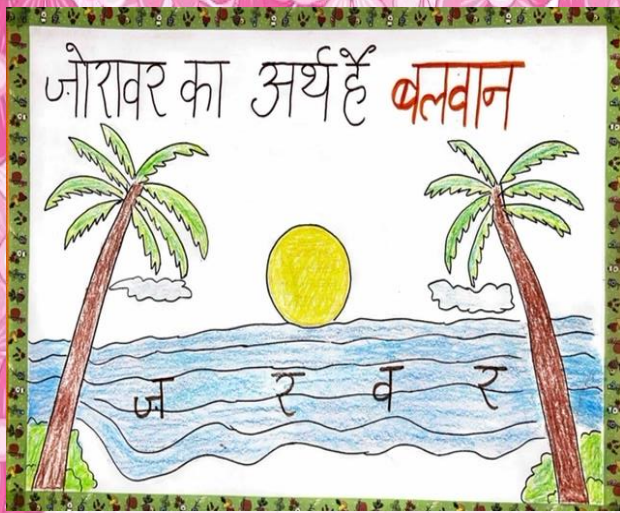 ज़ोरावर का अर्थ हैं बलवान
ज़ र व र